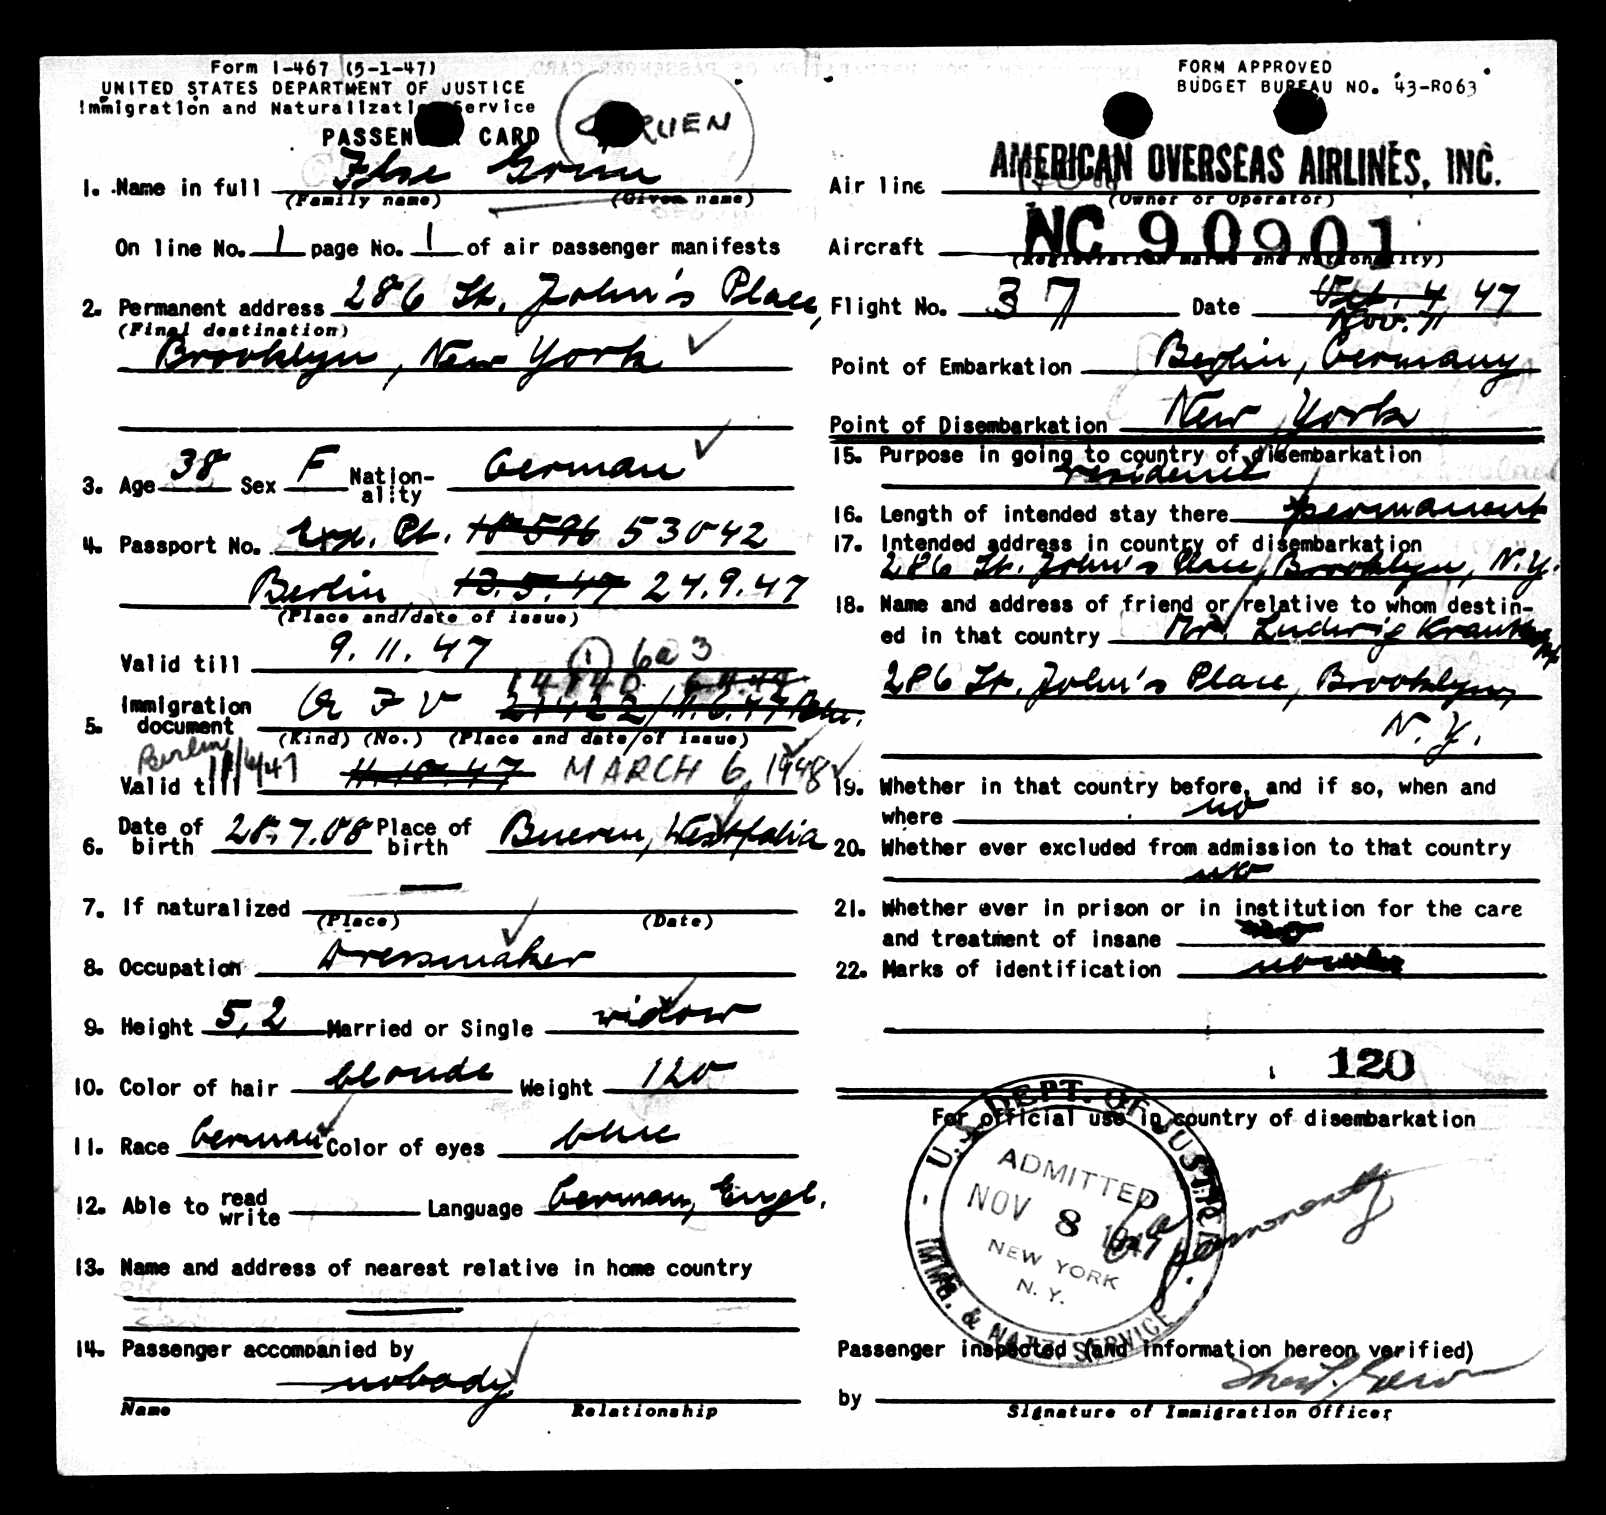 Form I-467 (5-1-47)
UNITED STATES DEPARTMENT OF JUSTICE
Immigration and Naturalization Service
PASSENGER CARD
GRUEN
1. Name in full Ilse Grün
(Family name) (Given name)
On line No. 1 page No. 1 of air passenger manifests
2. Permanent address 286 St. John's Place,
(Final destination)
Brooklyn, New York
3. Age 38 Sex F Nation-ality German
4. Passport No. 10596 53042
Berlin 13.5.47 24.9.47
(Place and/date of issue)
Valid till 9.11.47
1 6a3
5. Immigration document
(Kind) (No.) (Place and date/of issue)
Berlin
Valid till 11.10.47 MARCH 6, 1948
6. Date of birth 28.7.08 Place of birth Bueren, Westfalia
7. If naturalized —
(Place) (Date)
8. Occupation Dressmaker
9. Height 5,2 Married or Single widow
10. Color of hair blonde Weight 120
11. Race German Color of eyes blue
12. Able to read write Language German, Engl.
13. Name and address of nearest relative in home country
—
14. Passenger accompanied by
nobody
Name Relationship
FORM APPROVED
BUDGET BUREAU NO. 43-R063
Air line AMERICAN OVERSEAS AIRLINES, INC.
(Owner or Operator)
Aircraft NC 90901
(Registration marks and Nationality)
Flight No. 37 Date Oct. 4 47
Nov. 7
Point of Embarkation Berlin, Germany
Point of Disembarkation New York
15. Purpose in going to country of disembarkation
residence
16. Length of intended stay there permanent
17. Intended address in country of disembarkation
286 St. John's Place, Brooklyn, N.Y.
18. Name and address of friend or relative to whom destin-
ed in that country Mr. Ludwig
286 St. John's Place, Brooklyn,
N.Y.
19. Whether in that country before, and if so, when and
where no
20. Whether ever excluded from admission to that country
no
21. Whether ever in prison or in institution for the care
and treatment of insane no
22. Marks of identification
120
For official use in country of disembarkation
U.S. DEPT. OF JUSTICE
ADMITTED
NOV 8 1947
NEW YORK
N. Y.
IMMG. & NATZ. SERVICE
permanently
Passenger inspected (and information hereon verified)
by
Signature of Immigration Officer